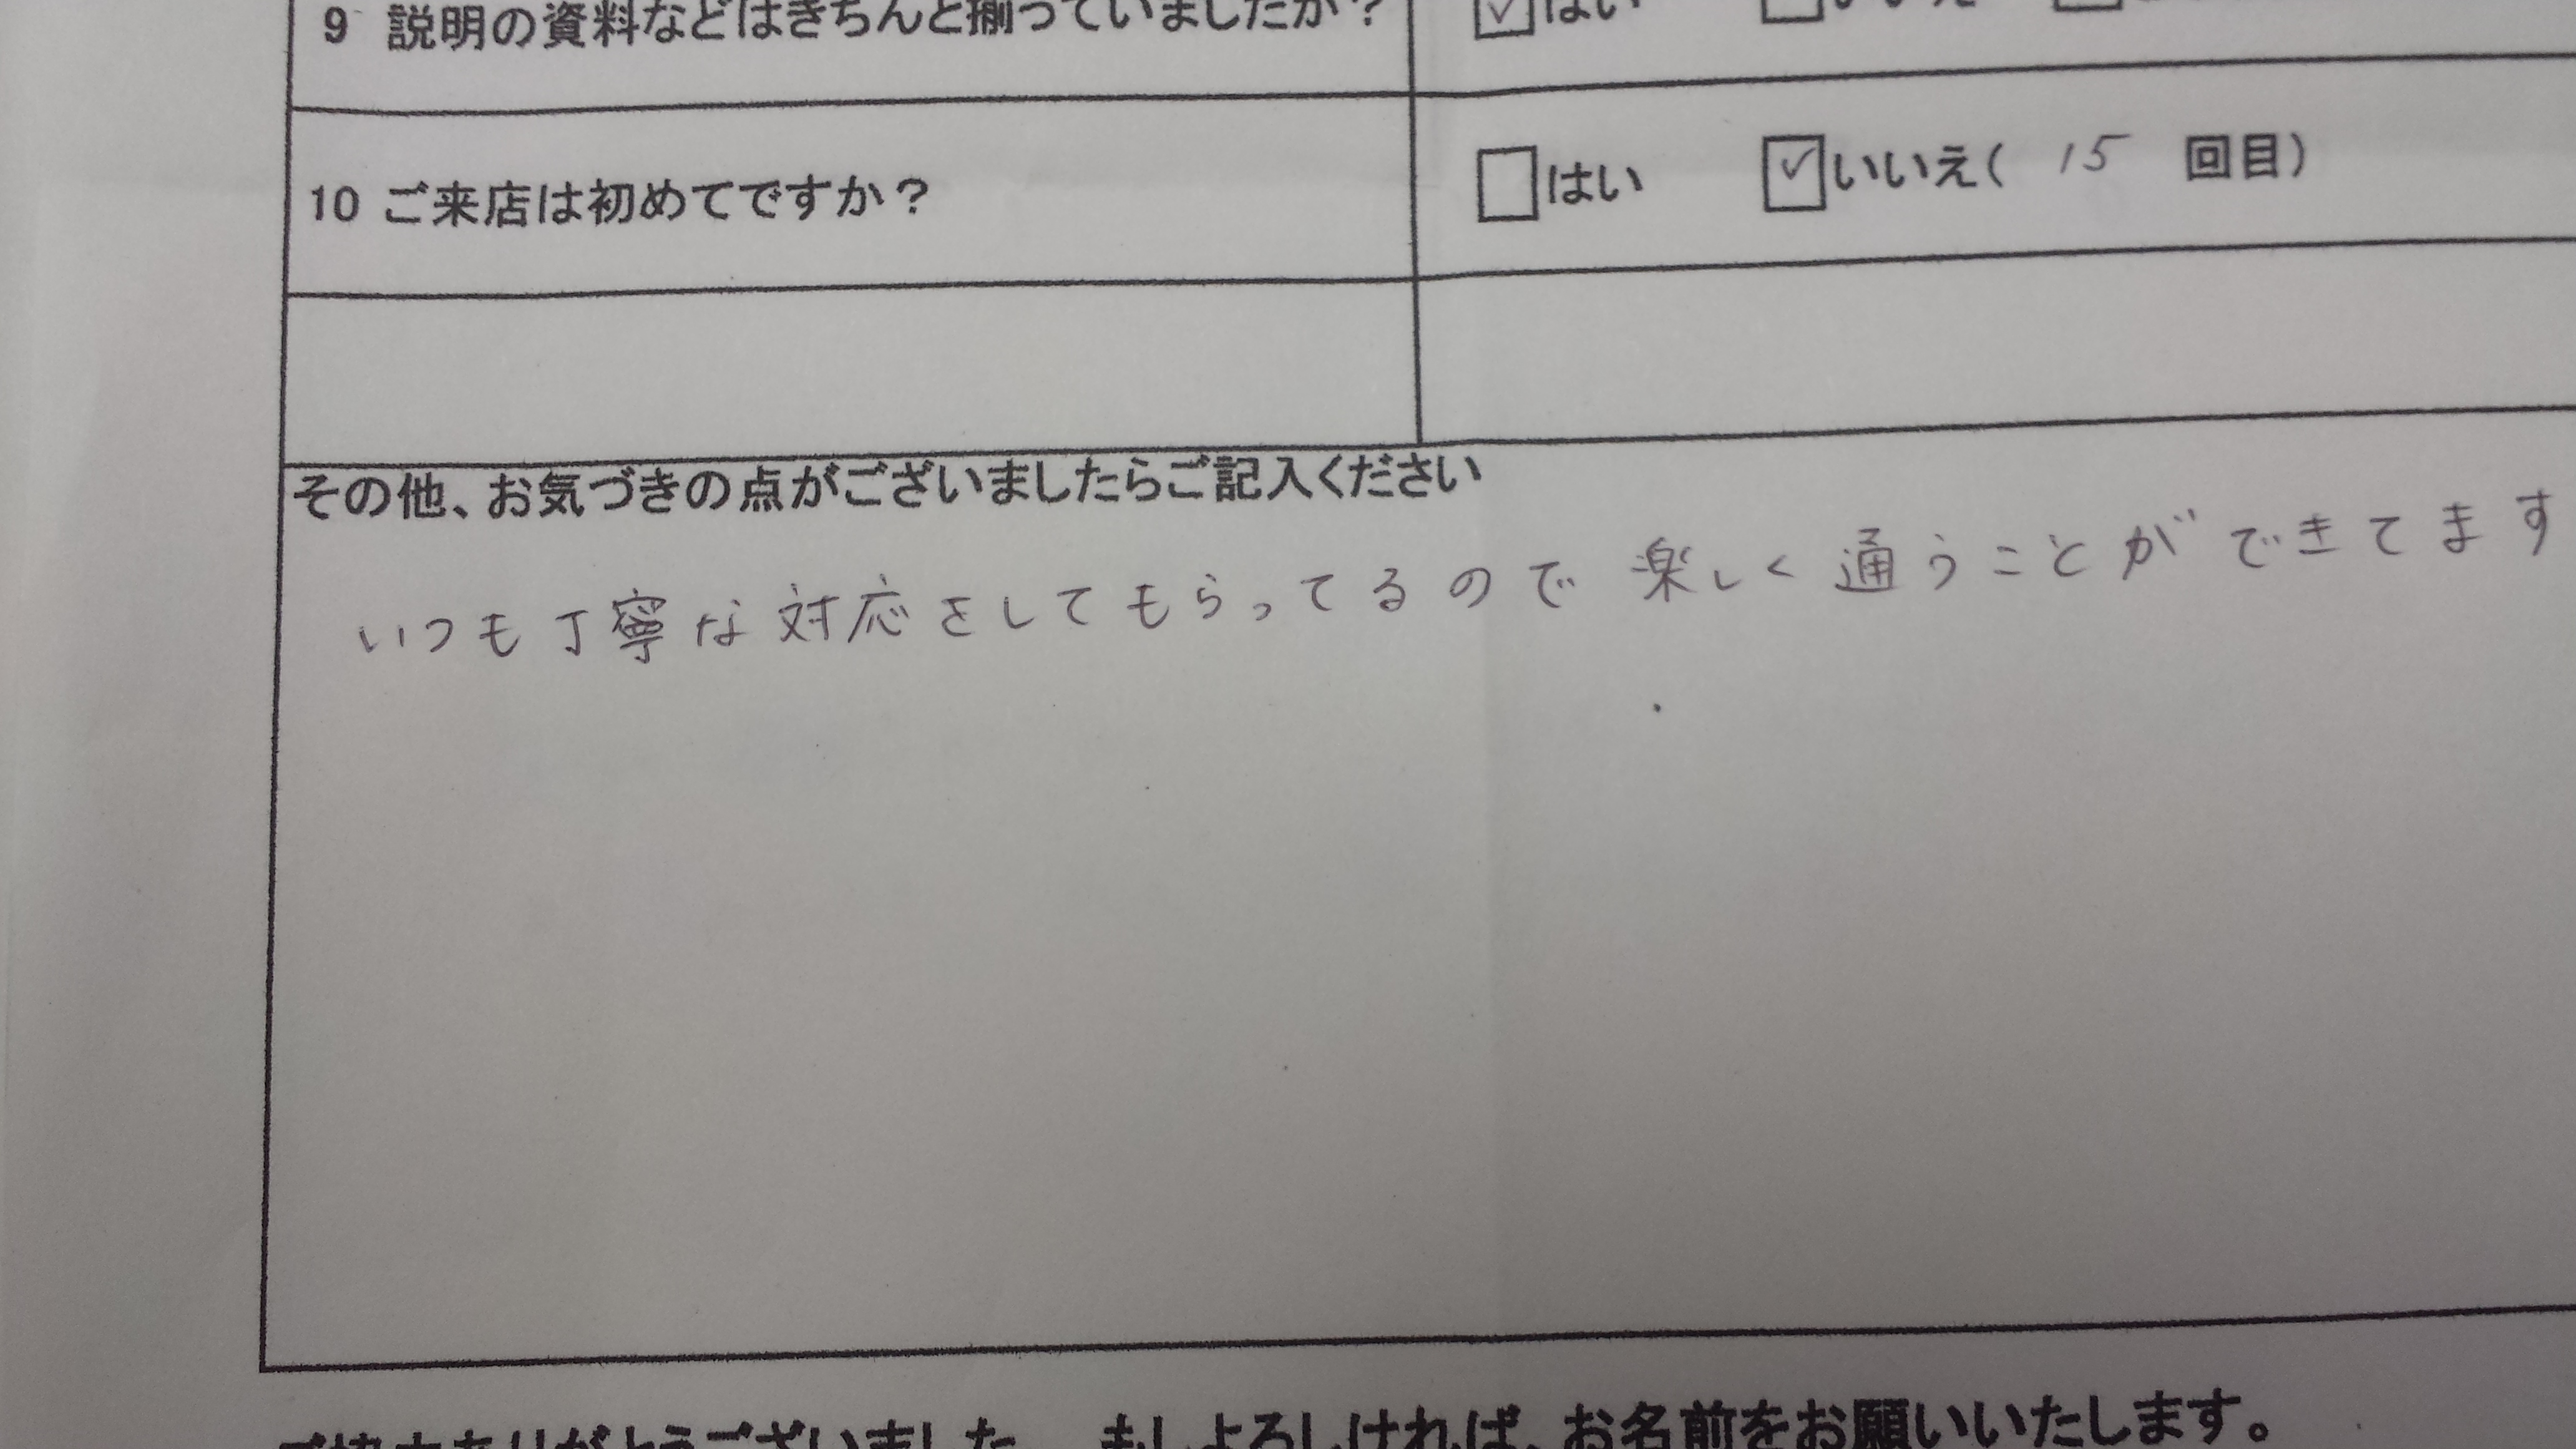 9 説明の資料などはきちんと揃っていましたか？ ☑はい □いいえ
10 ご来店は初めてですか？ □はい ☑いいえ( 15 回目)
その他、お気づきの点がございましたらご記入ください
いつも丁寧な対応をしてもらってるので楽しく通うことができてます
ご協力ありがとうございました。もしよろしければ、お名前をお願いいたします。